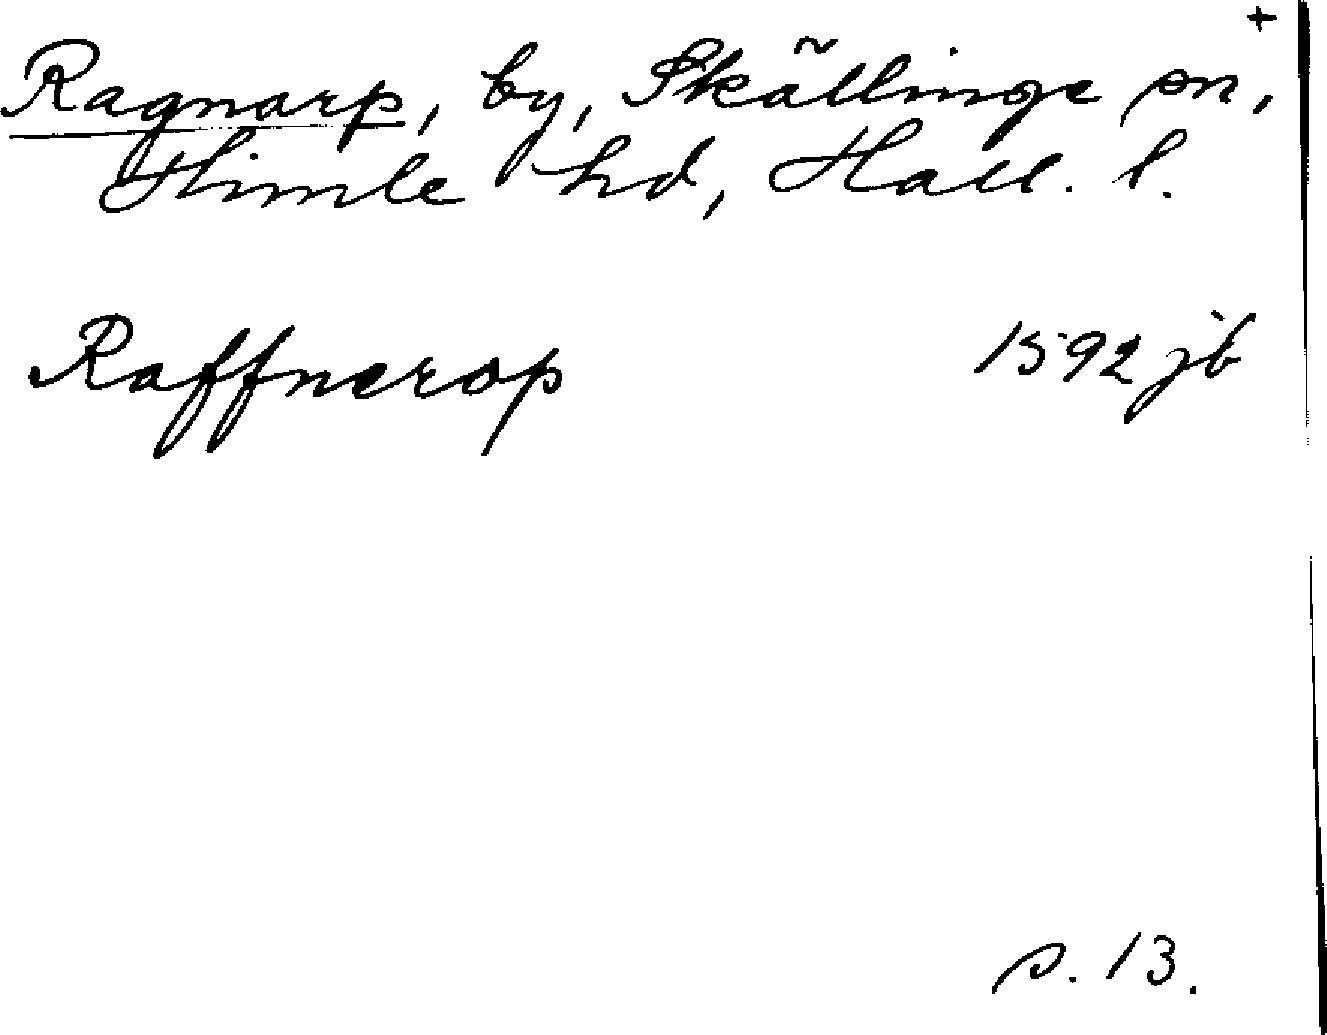 +
Ragnarp, by, Skällinge sn,
Himle hd, Hall. l.
Raffnerop 1592 jb
s. 13.